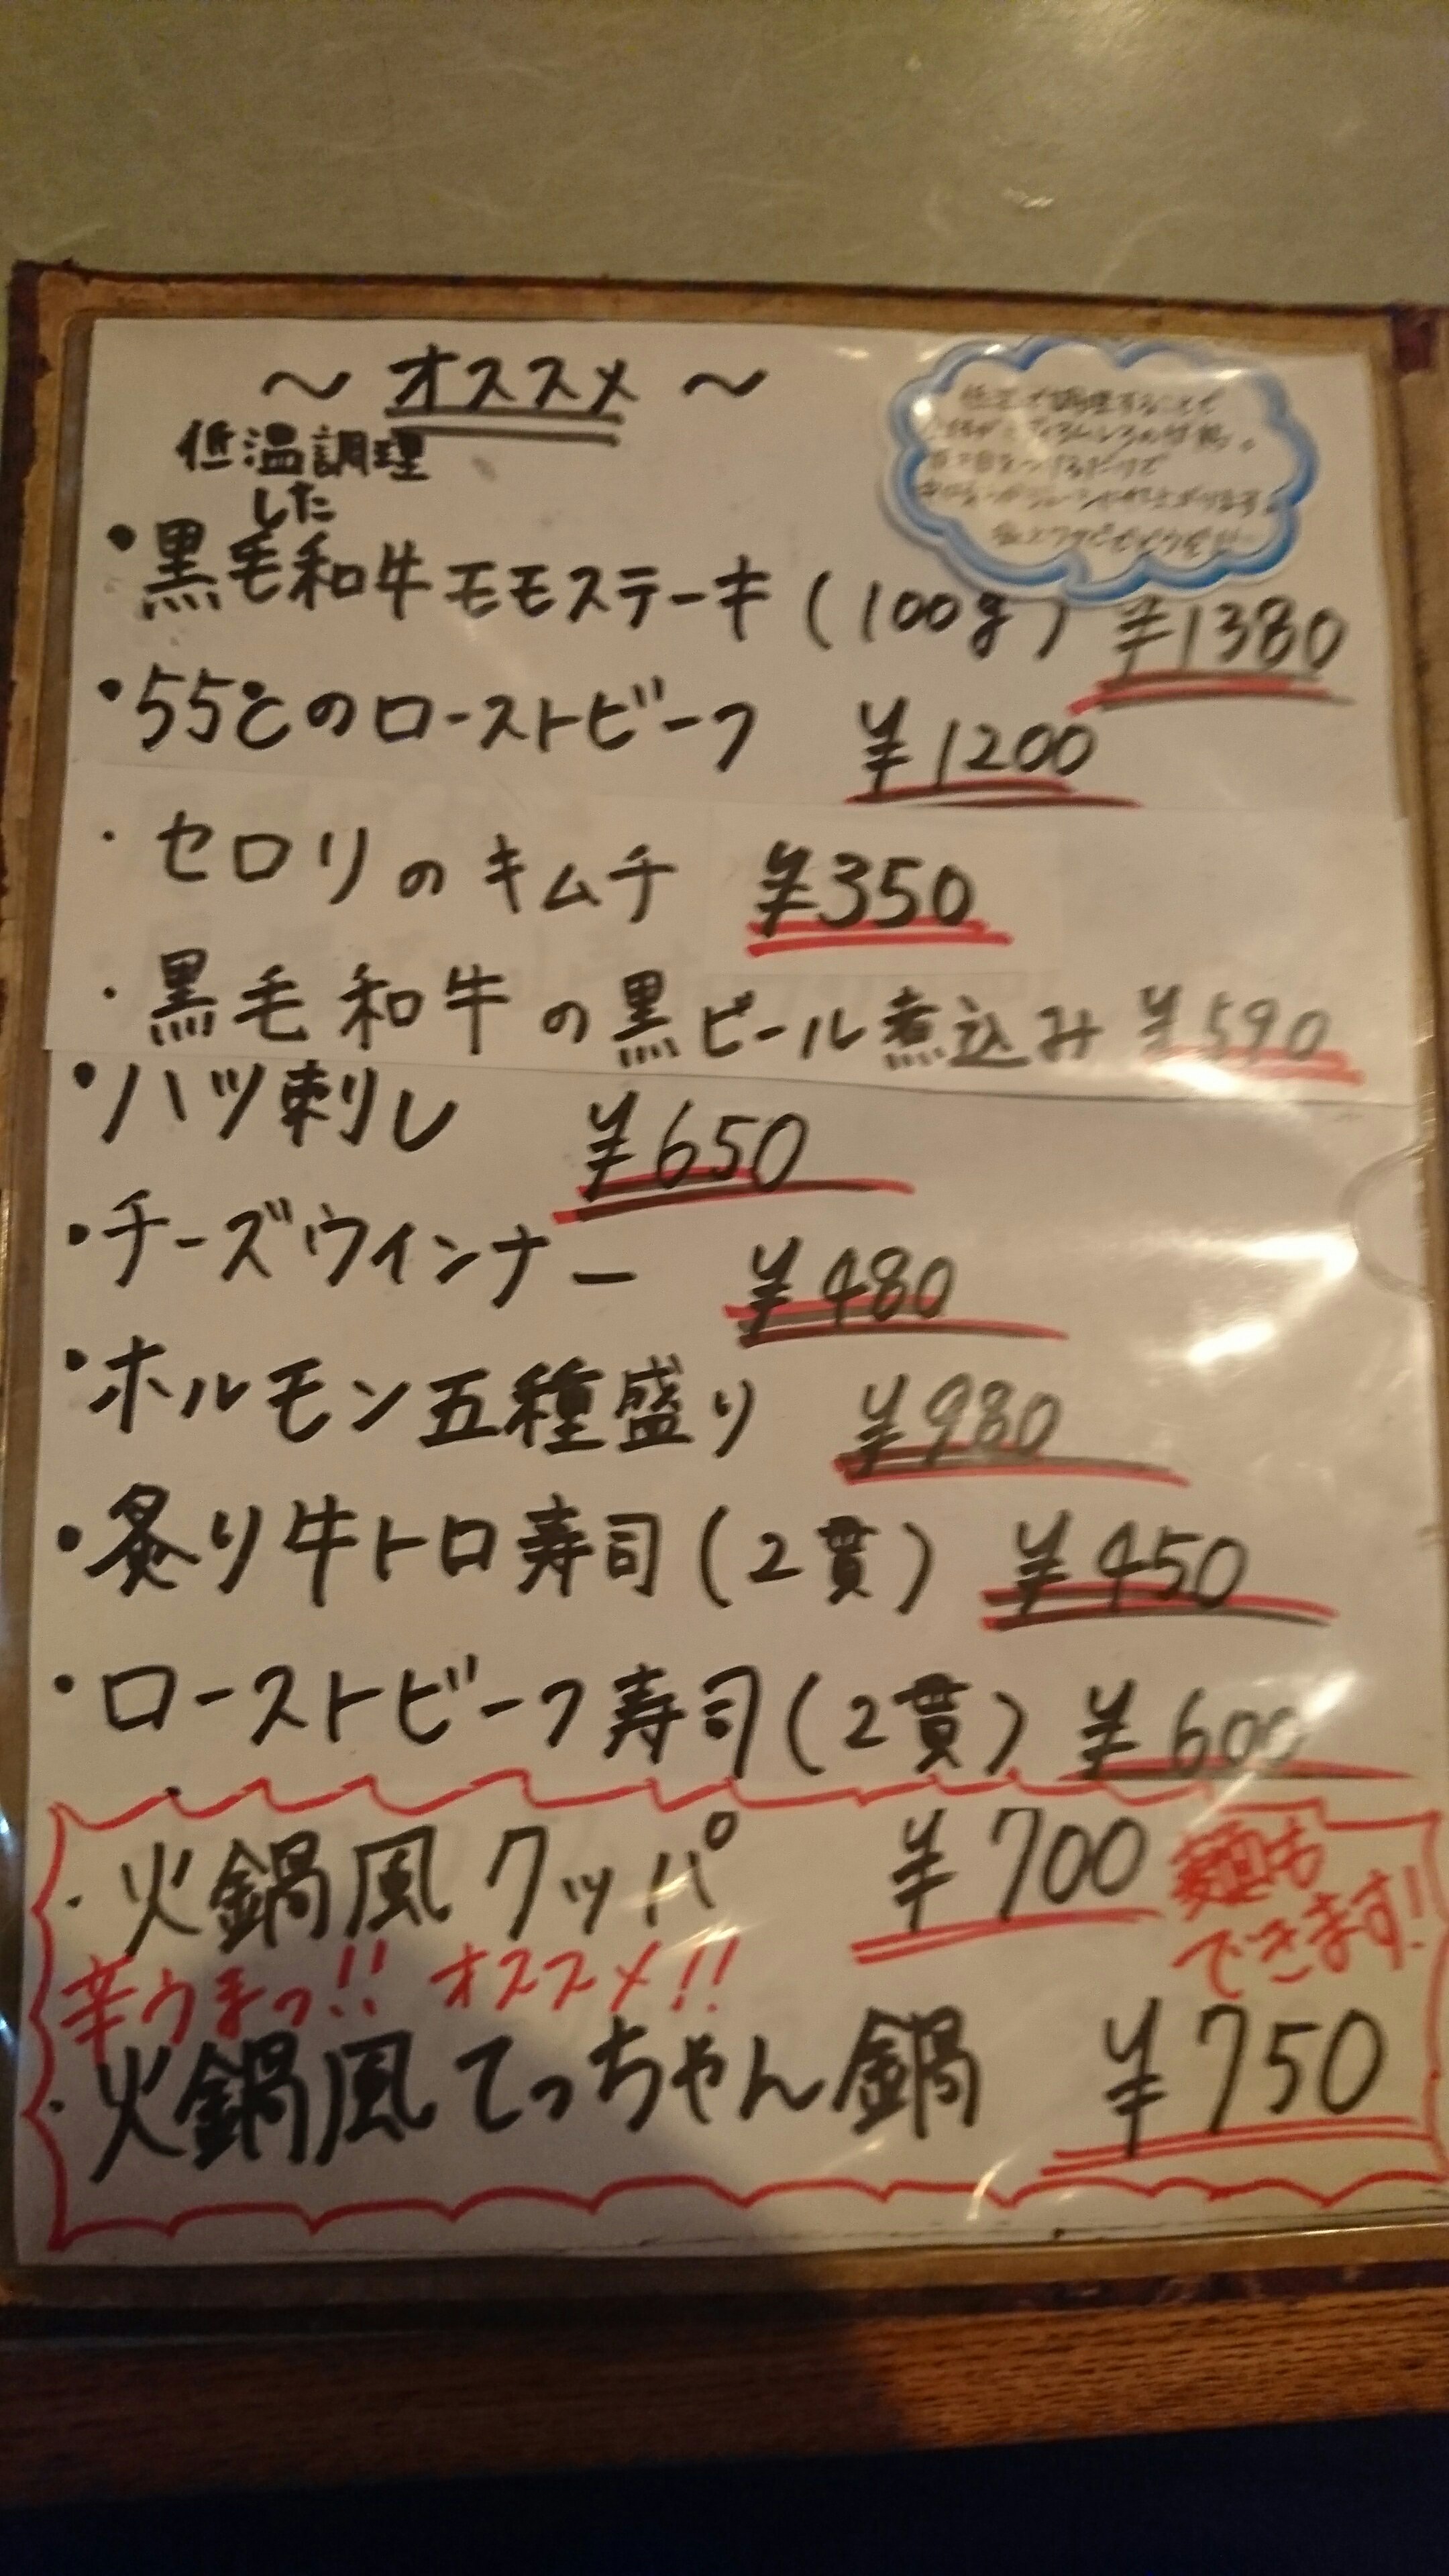 〜 オススメ 〜
低温調理
した
・黒毛和牛モモステーキ(100g) ¥1380
・55℃のローストビーフ ¥1200
・セロリのキムチ ¥350
・黒毛和牛の黒ビール煮込み ¥590
・ハツ刺し ¥650
・チーズウインナー ¥480
・ホルモン五種盛り ¥980
・炙り牛トロ寿司(2貫) ¥450
・ローストビーフ寿司(2貫) ¥600
・火鍋風クッパ ¥700
麺も
できます!
辛ウまっ!! オススメ!!
・火鍋風てっちゃん鍋 ¥750